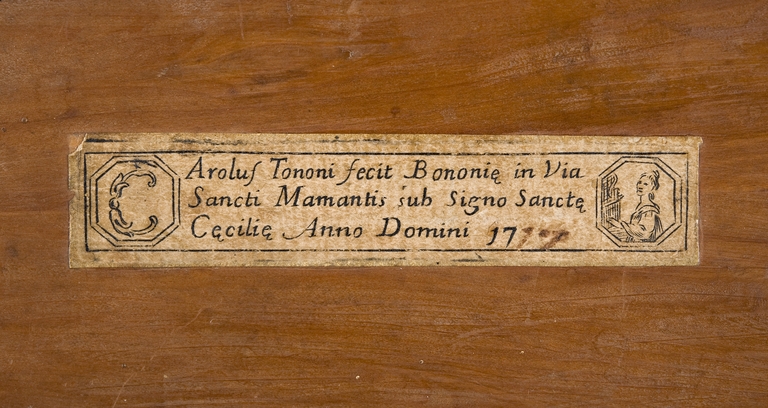 C Aroluſ Tononi fecit Bononię in Via
Sancti Mamantis sub Signo Sanctę
Cęcilię Anno Domini 17